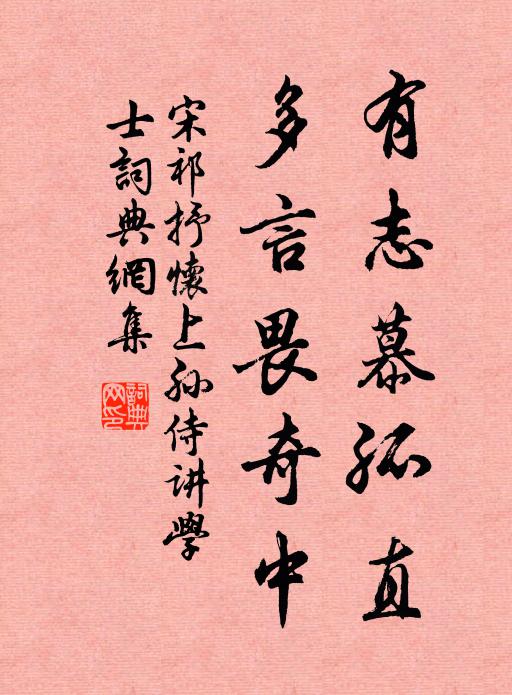 有志慕孤直
多言畏奇中
宋祁抒懷上孙侍讲學
士詞典網集
詞典
网印